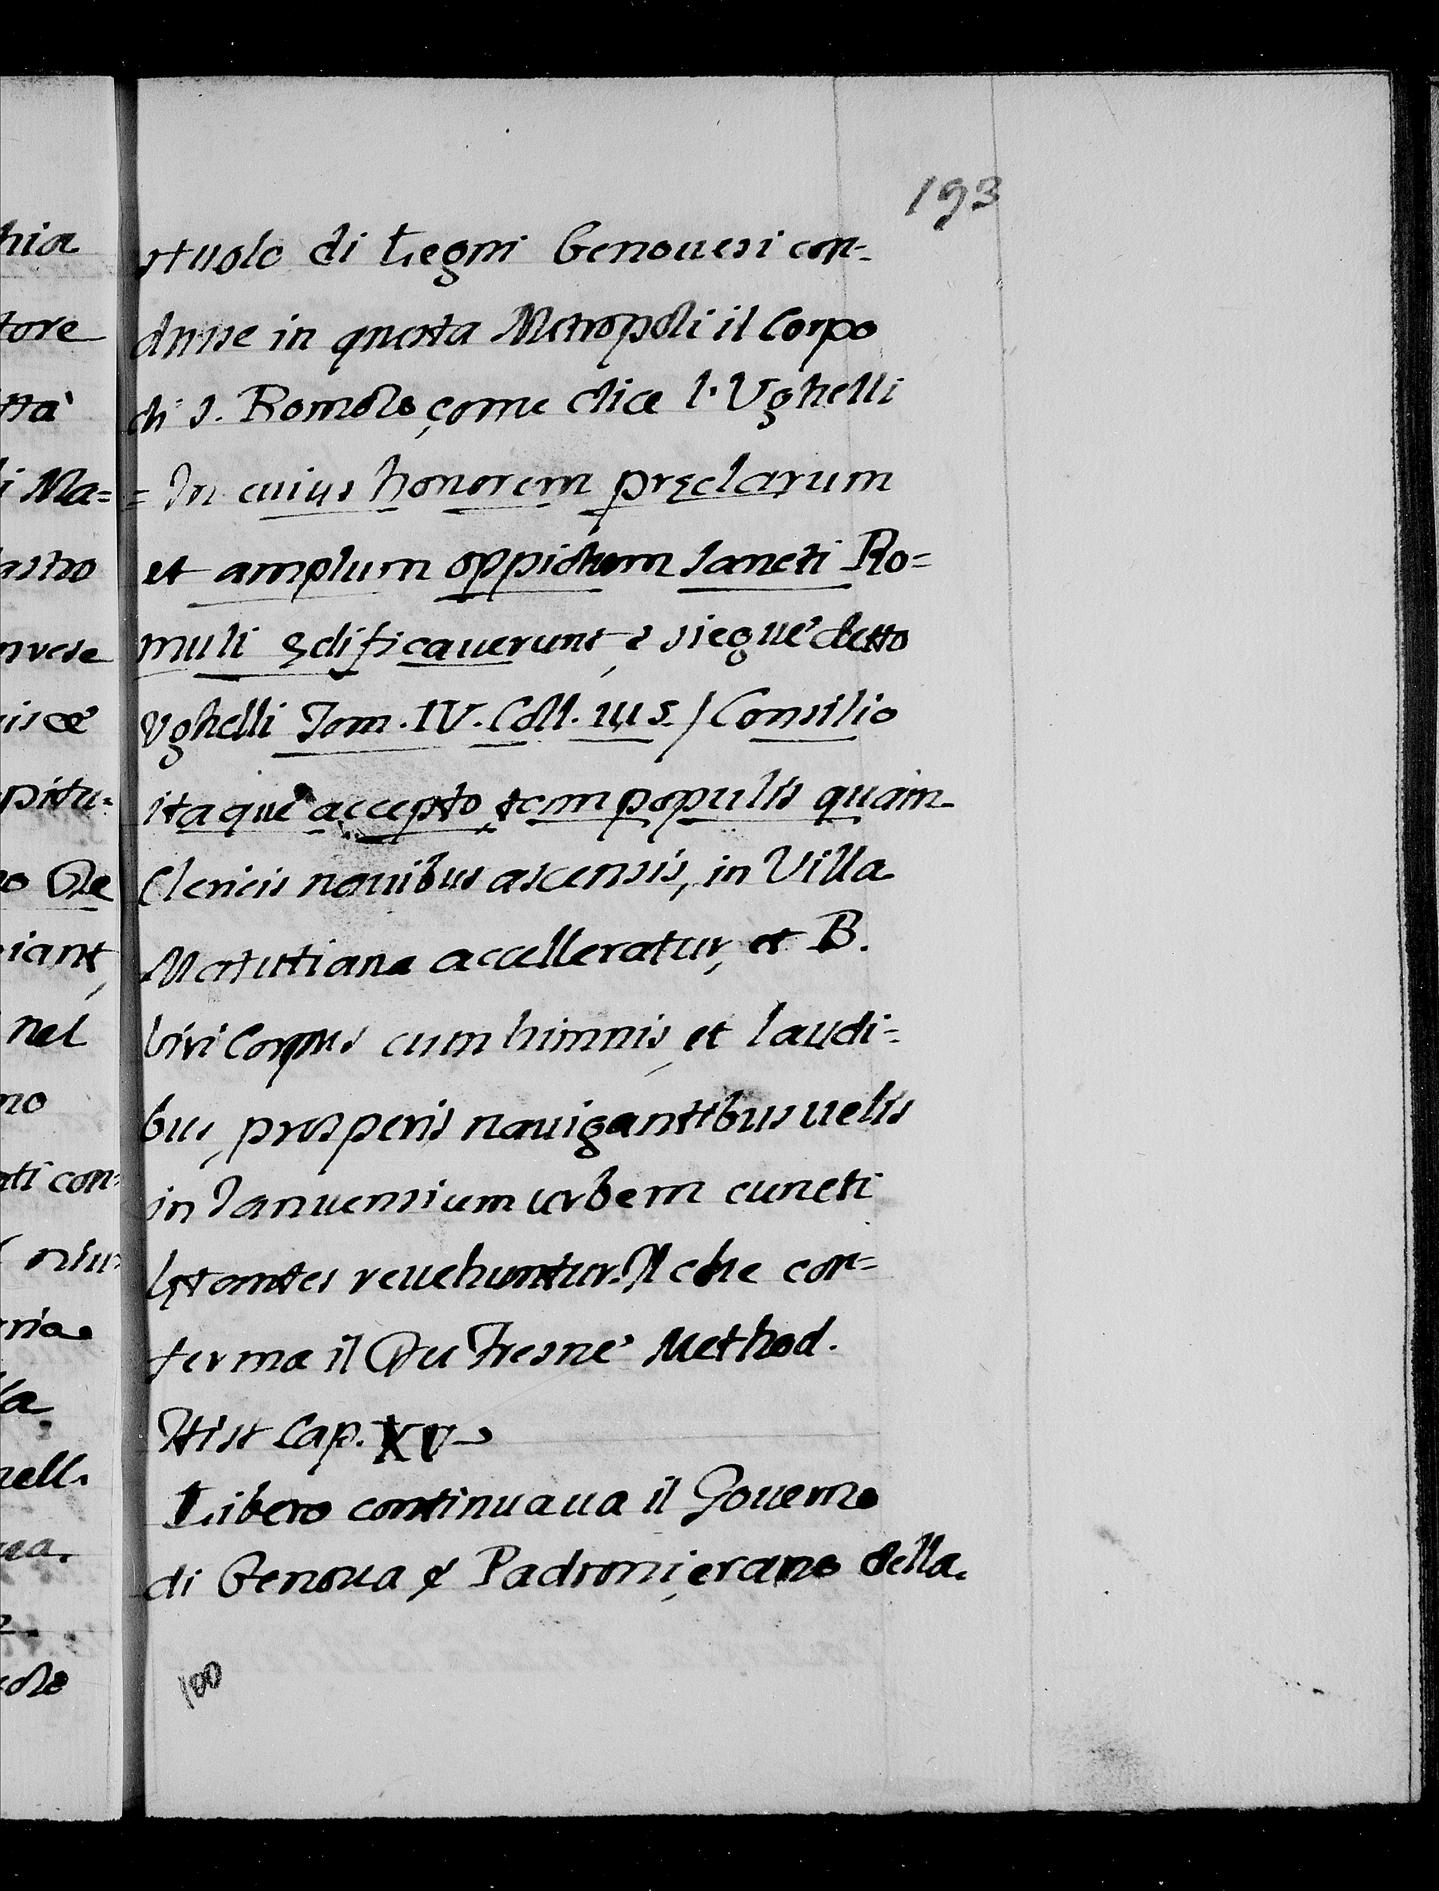 193
stuolo di Legni Genouesi con-
dusse in questa Metropoli il Corpo
di S. Romolo, come dice l'Ughelli
= In cuius honorem pręclarum
et amplum oppidum Sancti Ro=
muli ędificauerunt, e siegue detto
Ughelli Tom. IV. Coll. 1115 / Consilio
itaque accepto, tam populis quam
Clericis nauibus ascensis, in Villa
Matutiana accelleratur, et B.
Viri Corpus cum himnis, et laudi=
bus, prosperis nauigantibus uelis
in Januensium urbem cuncti
lętantes reuehuntur. Il che con=
ferma il Du Fresne Method.
Hist Cap. XV
Libero continuaua il Gouerno
di Genoua & Padroni, erano della
100
hia
tore
ttà
i Ma=
astro
nvese
pitu=
iant,
nel
no
ati con-
ria
la
nell.